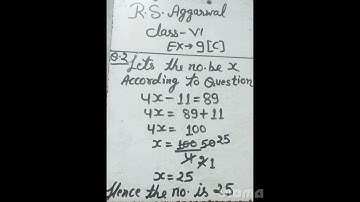 R.S. Aggarwal
Class-VI
EX→9[C]
Q.2 Lets the no. be x
According to Question
4x - 11 = 89
4x = 89 + 11
4x = 100
x = 100 50 25
4 2 1
x = 25
Hence the no. is 25